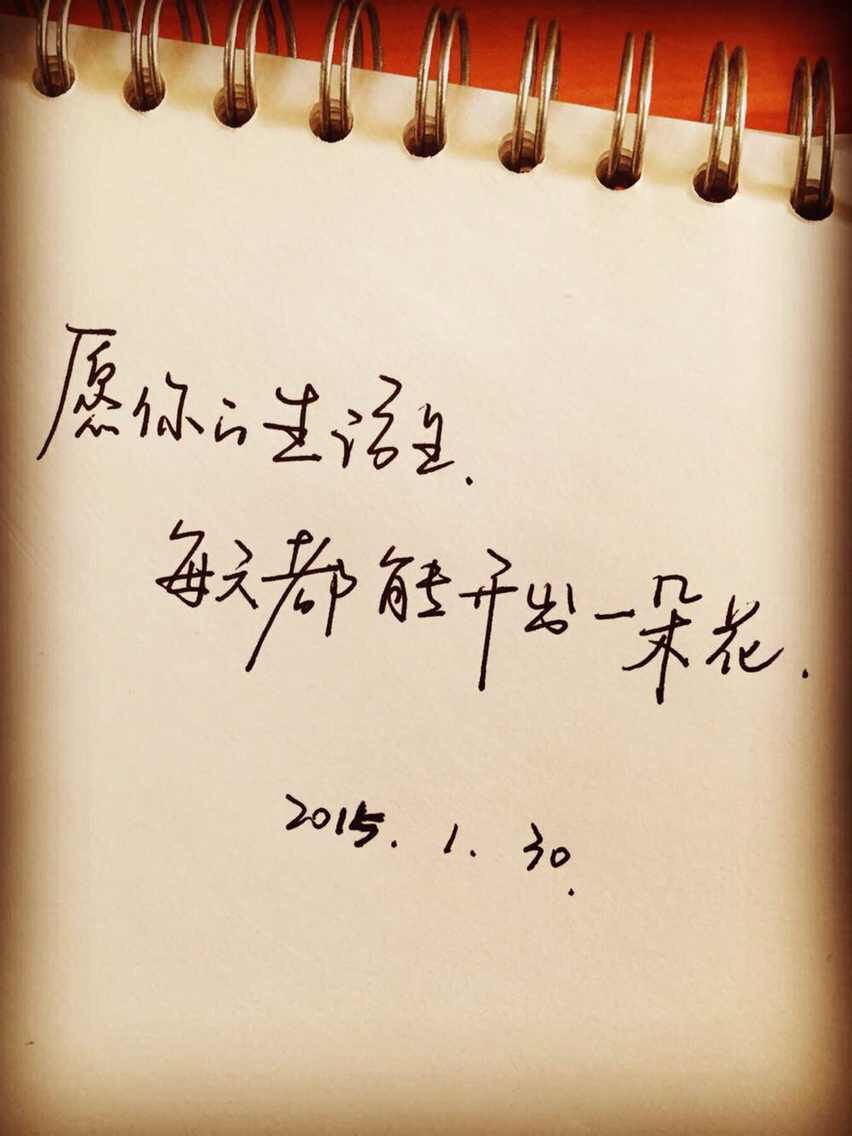 愿你的生活里.
每天都能开出一朵花.
2015. 1. 30.